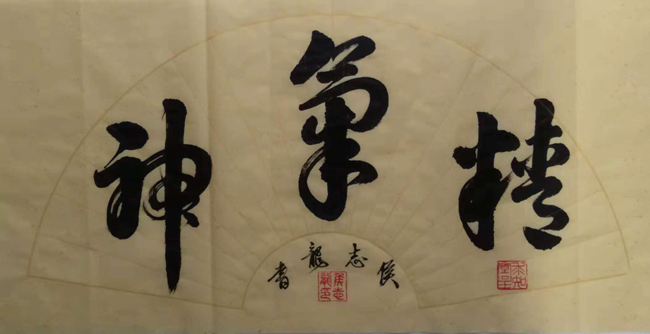 精氣神
侯志龍書